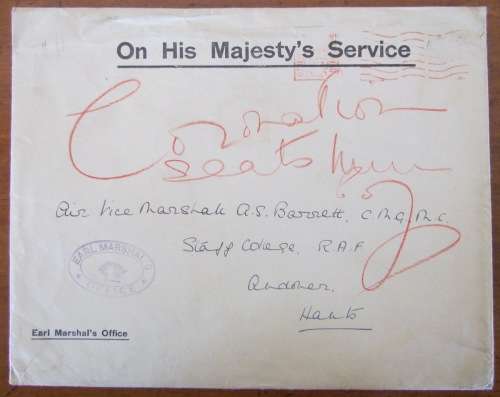 On His Majesty's Service
Coronation
seats
Air Vice Marshall A.S. Barrett, C.M.G, M.C.
Staff College, R.A.F
Andover,
Hants
EARL MARSHAL'S
OFFICE
Earl Marshal's Office